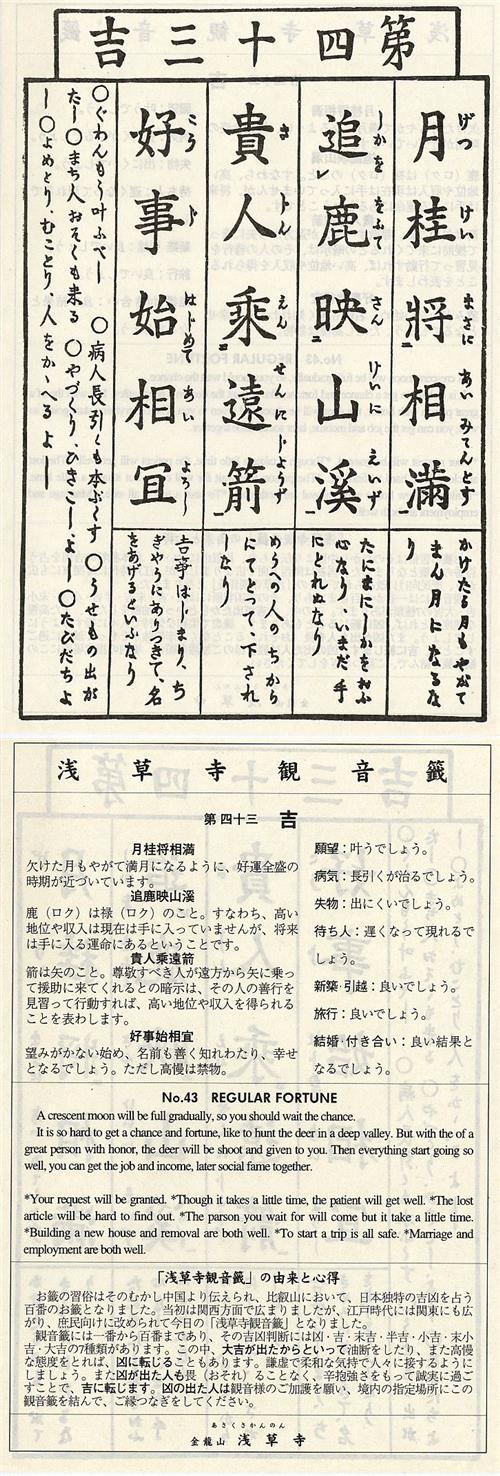 第四十三吉
月桂將相滿
げつけいまさにあいみてんとす
かけたる月もやがて
まん月になるな
り
追鹿映山溪
しかをおふてさんけいにえいず
たにまにしかをおふ
心なり、いまだ手
にとれぬなり
貴人乘遠箭
きじんえんせんにじょうず
めうへの人のちから
にてとつて下され
しなり
好事始相宜
こうじはじめてあいよろし
吉事はじまり、ち
ぎやうにありつきて、名
をあげるといふなり
〇ぐわんもう叶ふべし 〇病人長引くも本ぶくす 〇うせもの出が
たし〇まち人おそくも来る 〇やづくり、ひきこしよし 〇たびだちよ
し〇よめとり、むことり人をかゝへるよし
浅草寺観音籤
第四十三 吉
月桂将相満
欠けた月もやがて満月になるように、好運全盛の
時期が近づいています。
追鹿映山溪
鹿（ロク）は禄（ロク）のこと。すなわち、高い
地位や収入は現在は手に入っていませんが、将来
は手に入る運命にあるということです。
貴人乗遠箭
箭は矢のこと。尊敬すべき人が遠方から矢に乗っ
て援助に来てくれるとの暗示は、その人の善行を
見習って行動すれば、高い地位や収入を得られる
ことを表わします。
好事始相宜
望みがかない始め、名前も善く知れわたり、幸せ
となるでしょう。ただし高慢は禁物。
願望：叶うでしょう。
病気：長引くが治るでしょう。
失物：出にくいでしょう。
待ち人：遅くなって現れるで
しょう。
新築・引越：良いでしょう。
旅行：良いでしょう。
結婚・付き合い：良い結果と
なるでしょう。
No.43 REGULAR FORTUNE
A crescent moon will be full gradually, so you should wait the chance.
It is so hard to get a chance and fortune, like to hunt the deer in a deep valley. But with the of a
great person with honor, the deer will be shoot and given to you. Then everything start going so
well, you can get the job and income, later social fame together.
*Your request will be granted. *Though it takes a little time, the patient will get well. *The lost
article will be hard to find out. *The parson you wait for will come but it take a little time.
*Building a new house and removal are both well. *To start a trip is all safe. *Marriage and
employment are both well.
「浅草寺観音籤」の由来と心得
お籤の習俗はそのむかし中国より伝えられ、比叡山において、日本独特の吉凶を占う
百番のお籤となりました。当初は関西方面で広まりましたが、江戸時代には関東にも広
がり、庶民向けに改められて今日の「浅草寺観音籤」となりました。
観音籤には一番から百番まであり、その吉凶判断には凶・吉・末吉・半吉・小吉・末小
吉・大吉の7種類があります。この中、大吉が出たからといって油断をしたり、また高慢
な態度をとれば、凶に転じることもあります。謙虚で柔和な気持で人々に接するように
しましょう。また凶が出た人も畏（おそれ）ることなく、辛抱強さをもって誠実に過ご
すことで、吉に転じます。凶の出た人は観音様のご加護を願い、境内の指定場所にこの
観音籤を結んで、ご縁つなぎをしてください。
あさくさかんのん
金龍山 浅草寺